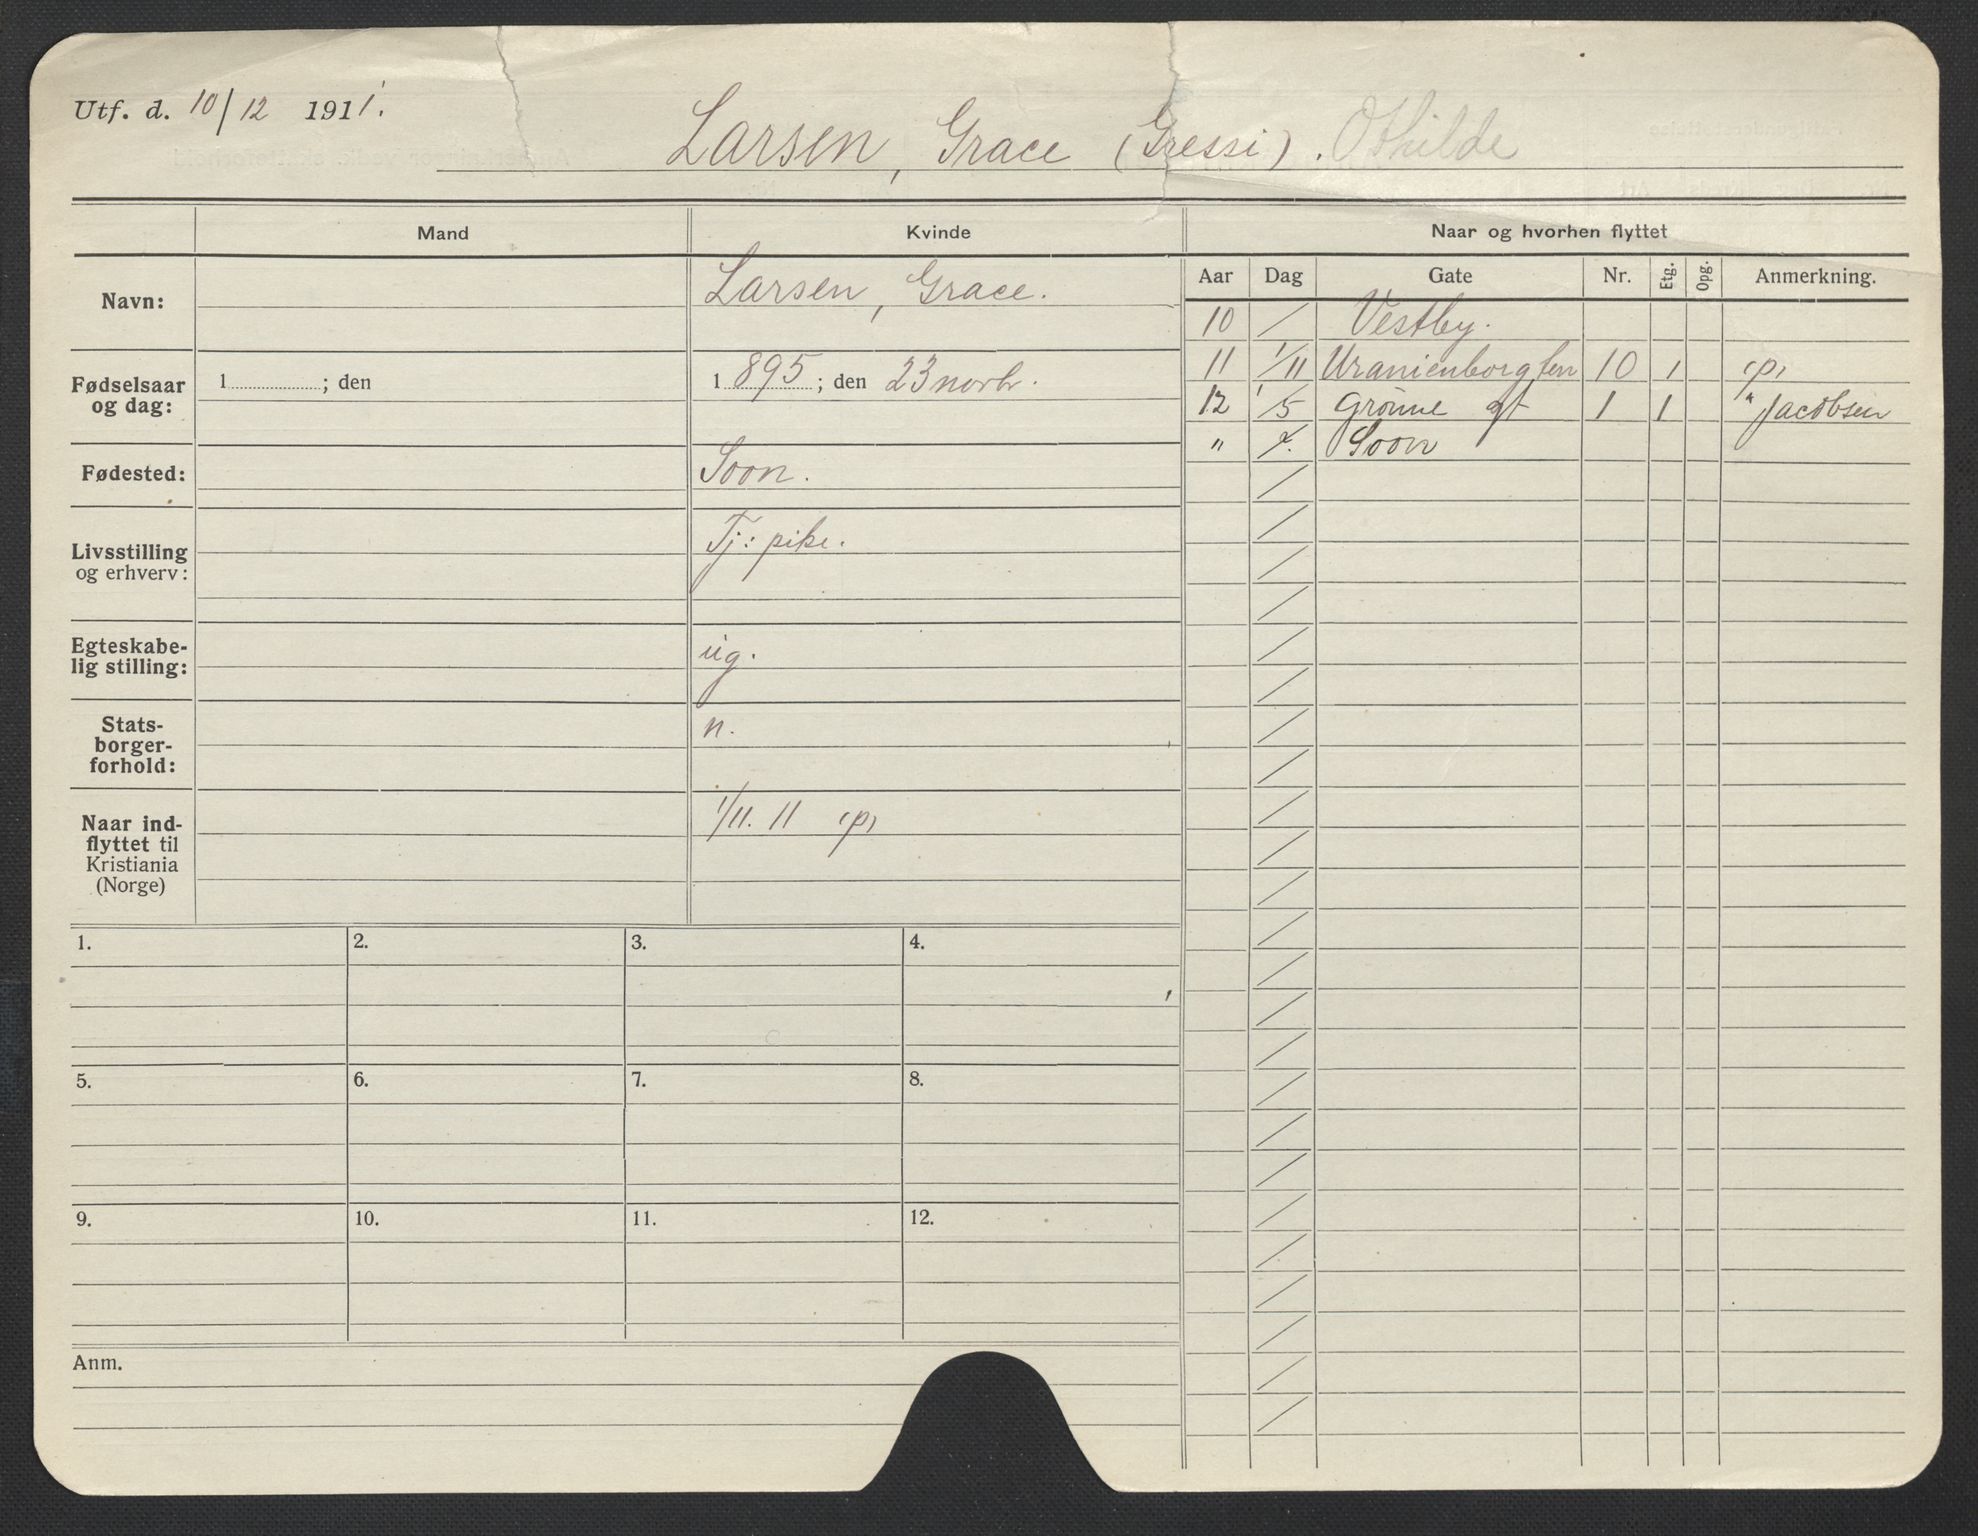 Utf. d. 10/12 1911.
Larsen, Grace (Gressi). Othilde
Mand Kvinde Naar og hvorhen flyttet
Aar Dag Gate Nr. Etg. Opg. Anmerkning.
Navn: Larsen, Grace.
Fødselsaar og dag: 1 ; den 1 895 ; den 23 novbr.
Fødested: Soon.
Livsstilling og erhverv: Tj: pike.
Egteskabe-
lig stilling: ug.
Stats-
borger-
forhold: n.
Naar ind-
flyttet til
Kristiania
(Norge) 1/11. 11 (p)
10 / Vestby.
11 1/11 Uranienborg ten 10 1 (p)
12 1/5 Grønne gt 1 1 " Jacobsen
" Soon
1. 2. 3. 4.
5. 6. 7. 8.
9. 10. 11. 12.
Anm.